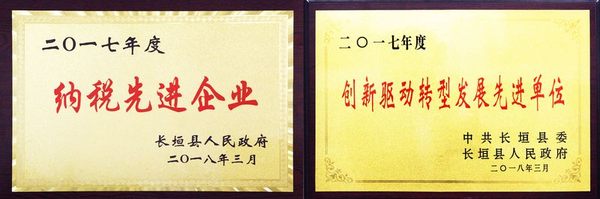 二〇一七年度
纳税先进企业
长垣县人民政府
二〇一八年三月
二〇一七年度
创新驱动转型发展先进单位
中共长垣县委
长垣县人民政府
二〇一八年三月